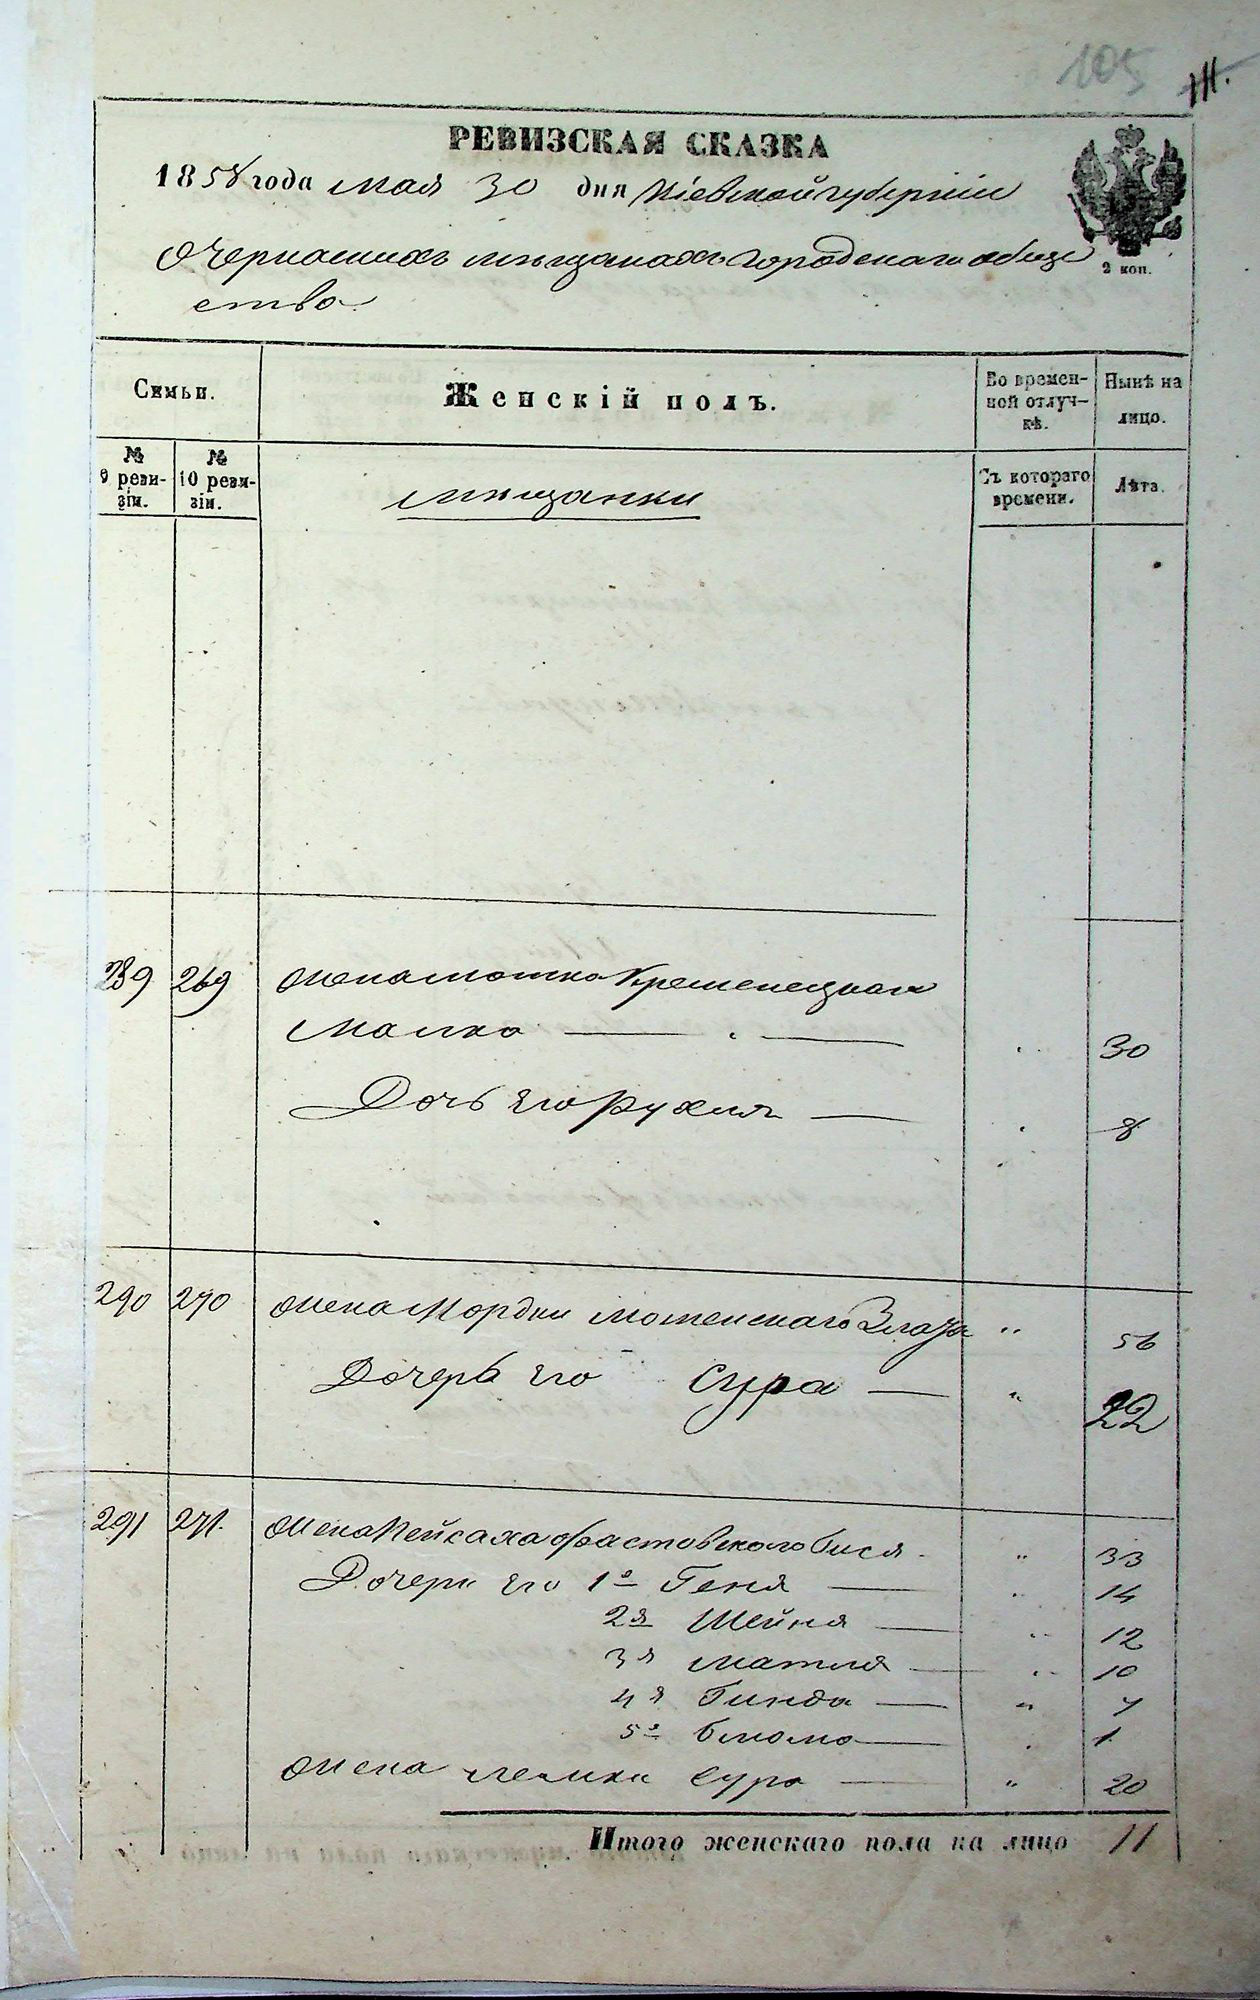 105
РЕВИЗСКАЯ СКАЗКА
1858 года мая 30 дня Кіевской губерніи
2 коп.
О мещанахъ городскаго обще
ства
Семьи. Женскій полъ. Во времен-ной отлуч-кѣ. Нынѣ на лицо.
№ 9 реви-зіи. № 10 реви-зіи. мещанки Съ котораго времени. Лѣта.
289 269 Жена Мошка Кременецкаго
Малка 30
Дочь его Рухля 8
290 270 Жена Мордки Злата 56
Дочерь его Сура 22
291 271. Жена Пейсаха Фастовского Бися 33
Дочери его 1я Геня 14
2я Шейня 12
3я Матля 10
4я Гинда 7
5я Блюма 1
Жена Сура 20
Итого женскаго пола на лицо 11